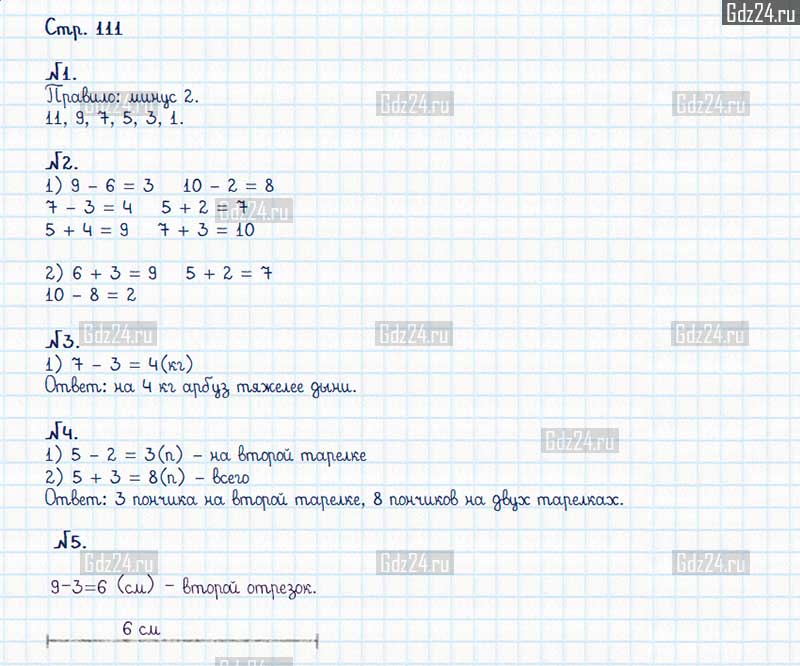 Gdz24.ru
Стр. 111
№1.
Правило: минус 2.
Gdz24.ru Gdz24.ru Gdz24.ru
11, 9, 7, 5, 3, 1.
№2.
1) 9 - 6 = 3 10 - 2 = 8
7 - 3 = 4 5 + 2 = 7
Gdz24.ru
5 + 4 = 9 7 + 3 = 10
2) 6 + 3 = 9 5 + 2 = 7
10 - 8 = 2
Gdz24.ru Gdz24.ru Gdz24.ru
№3.
1) 7 - 3 = 4(кг)
Ответ: на 4 кг арбуз тяжелее дыни.
№4.
Gdz24.ru
1) 5 - 2 = 3(п) - на второй тарелке
2) 5 + 3 = 8(п) - всего
Ответ: 3 пончика на второй тарелке, 8 пончиков на двух тарелках.
№5.
Gdz24.ru Gdz24.ru Gdz24.ru
9-3=6 (см) - второй отрезок.
6 см
Gdz24.ru